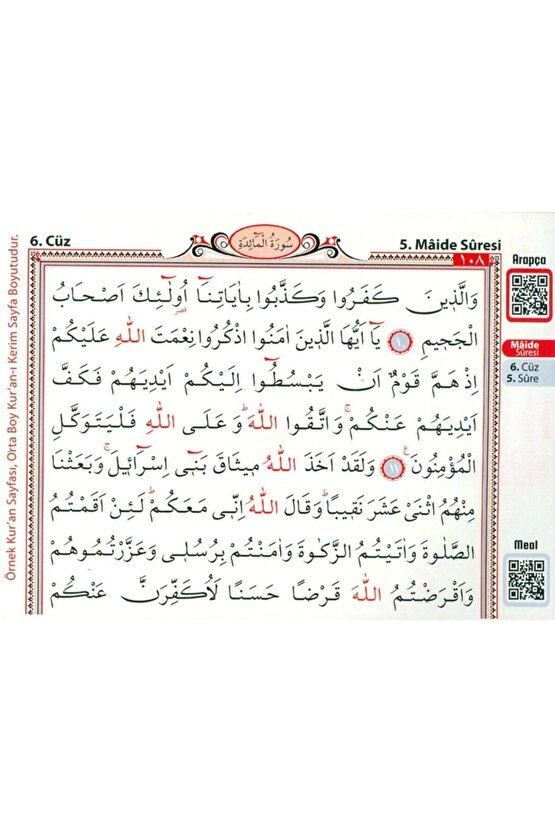 6. Cüz
سُورَةُ الْمَائِدَةِ
5. Mâide Sûresi
١٠٨
وَالَّذ۪ينَ كَفَرُوا وَكَذَّبُوا بِاٰيَاتِنَٓا اُو۬لٰٓئِكَ اَصْحَابُ
الْجَح۪يمِ ﴿١٠﴾ يَٓا اَيُّهَا الَّذ۪ينَ اٰمَنُوا اذْكُرُوا نِعْمَتَ اللّٰهِ عَلَيْكُمْ
اِذْ هَمَّ قَوْمٌ اَنْ يَبْسُطُٓوا اِلَيْكُمْ اَيْدِيَهُمْ فَكَفَّ
اَيْدِيَهُمْ عَنْكُمْۚ وَاتَّقُوا اللّٰهَۜ وَعَلَى اللّٰهِ فَلْيَتَوَكَّلِ
الْمُؤْمِنُونَ۟ ﴿١١﴾ وَلَقَدْ اَخَذَ اللّٰهُ م۪يثَاقَ بَن۪ٓي اِسْرَٓائ۪لَۚ وَبَعَثْنَا
مِنْهُمُ اثْنَيْ عَشَرَ نَق۪يبًاۜ وَقَالَ اللّٰهُ اِنّ۪ي مَعَكُمْۜ لَئِنْ اَقَمْتُمُ
الصَّلٰوةَ وَاٰتَيْتُمُ الزَّكٰوةَ وَاٰمَنْتُمْ بِرُسُل۪ي وَعَزَّرْتُمُوهُمْ
وَاَقْرَضْتُمُ اللّٰهَ قَرْضًا حَسَنًا لَاُكَفِّرَنَّ عَنْكُمْ
Arapça
Mâide
Sûresi
6. Cüz
5. Sûre
Meal
Örnek Kur'an Sayfası, Orta Boy Kur'an-ı Kerim Sayfa Boyutudur.